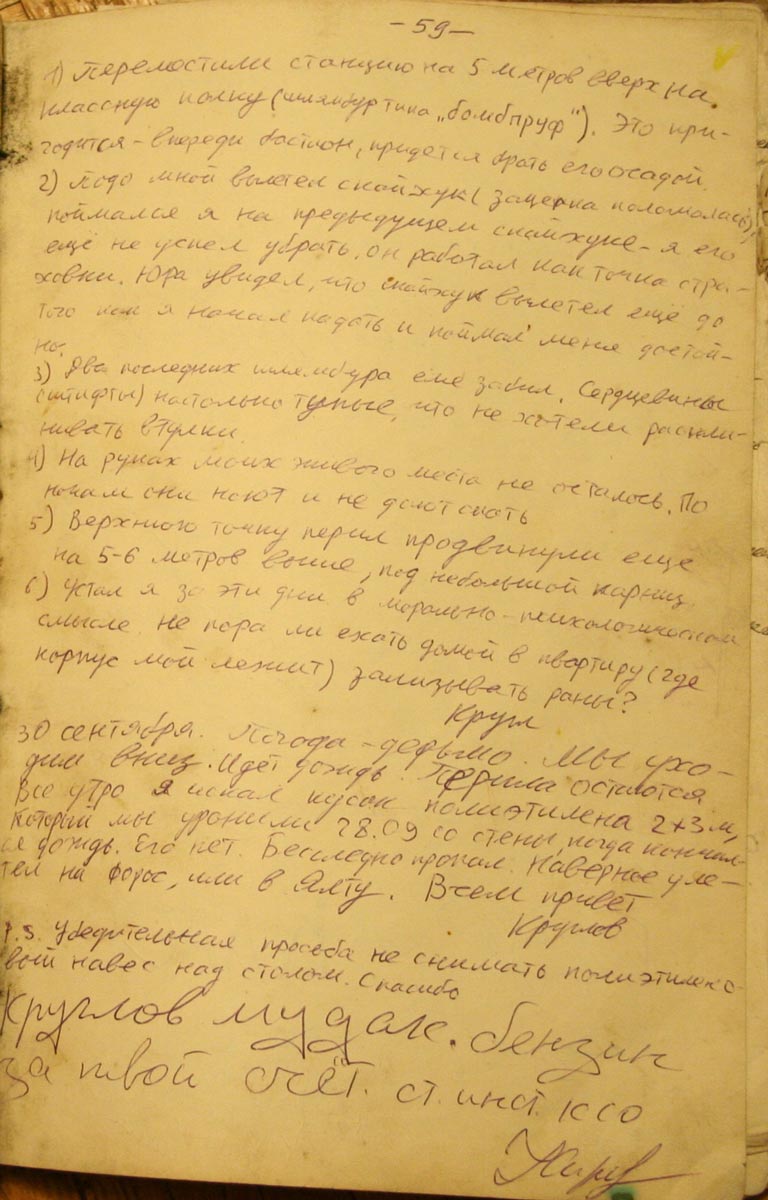 -59-
1) Перемостили станцию на 5 метров вверх на
классную полку (шлямбур типа „бомбпруф"). Это при-
годится - впереди бастион, придется брать его осадой.
2) Подо мной вылетел скайхук (зацепка поломалась),
поймался я на предыдущем скайхуке - я его
ещё не успел убрать, он работал как точка стра-
ховки. Юра увидел, что скайхук вылетел ещё до
того как я начал падать и поймал меня достой-
но.
3) Два последних шлямбура еле забил. Сердцевины
(штифты) настолько тупые, что не хотели раскли-
нивать втулки.
4) На руках моих живого места не осталось. По
ночам они ноют и не дают спать
5) Верхнюю точку перил продвинули ещё
на 5-6 метров выше, под небольшой карниз.
6) Устал я за эти дни в морально-психологическом
смысле. Не пора ли ехать домой в квартиру (где
корпус мой лежит) зализывать раны?
Кругл
30 сентября. Погода - дерьмо. Мы ухо-
дим вниз. Идёт дождь. Перила остаются
Все утро я искал кусок полиэтилена 2*3 м,
который мы уронили 28.09 со стены, когда кончал-
ся дождь. Его нет. Бесследно пропал. Наверное уле-
тел на Форос, или в Ялту. Всем привет
Круглов
P.S. Убедительная просьба не снимать полиэтилено-
вый навес над столом. Спасибо
Круглов мудак. бензин
за твой счёт. ст. инст. ксо